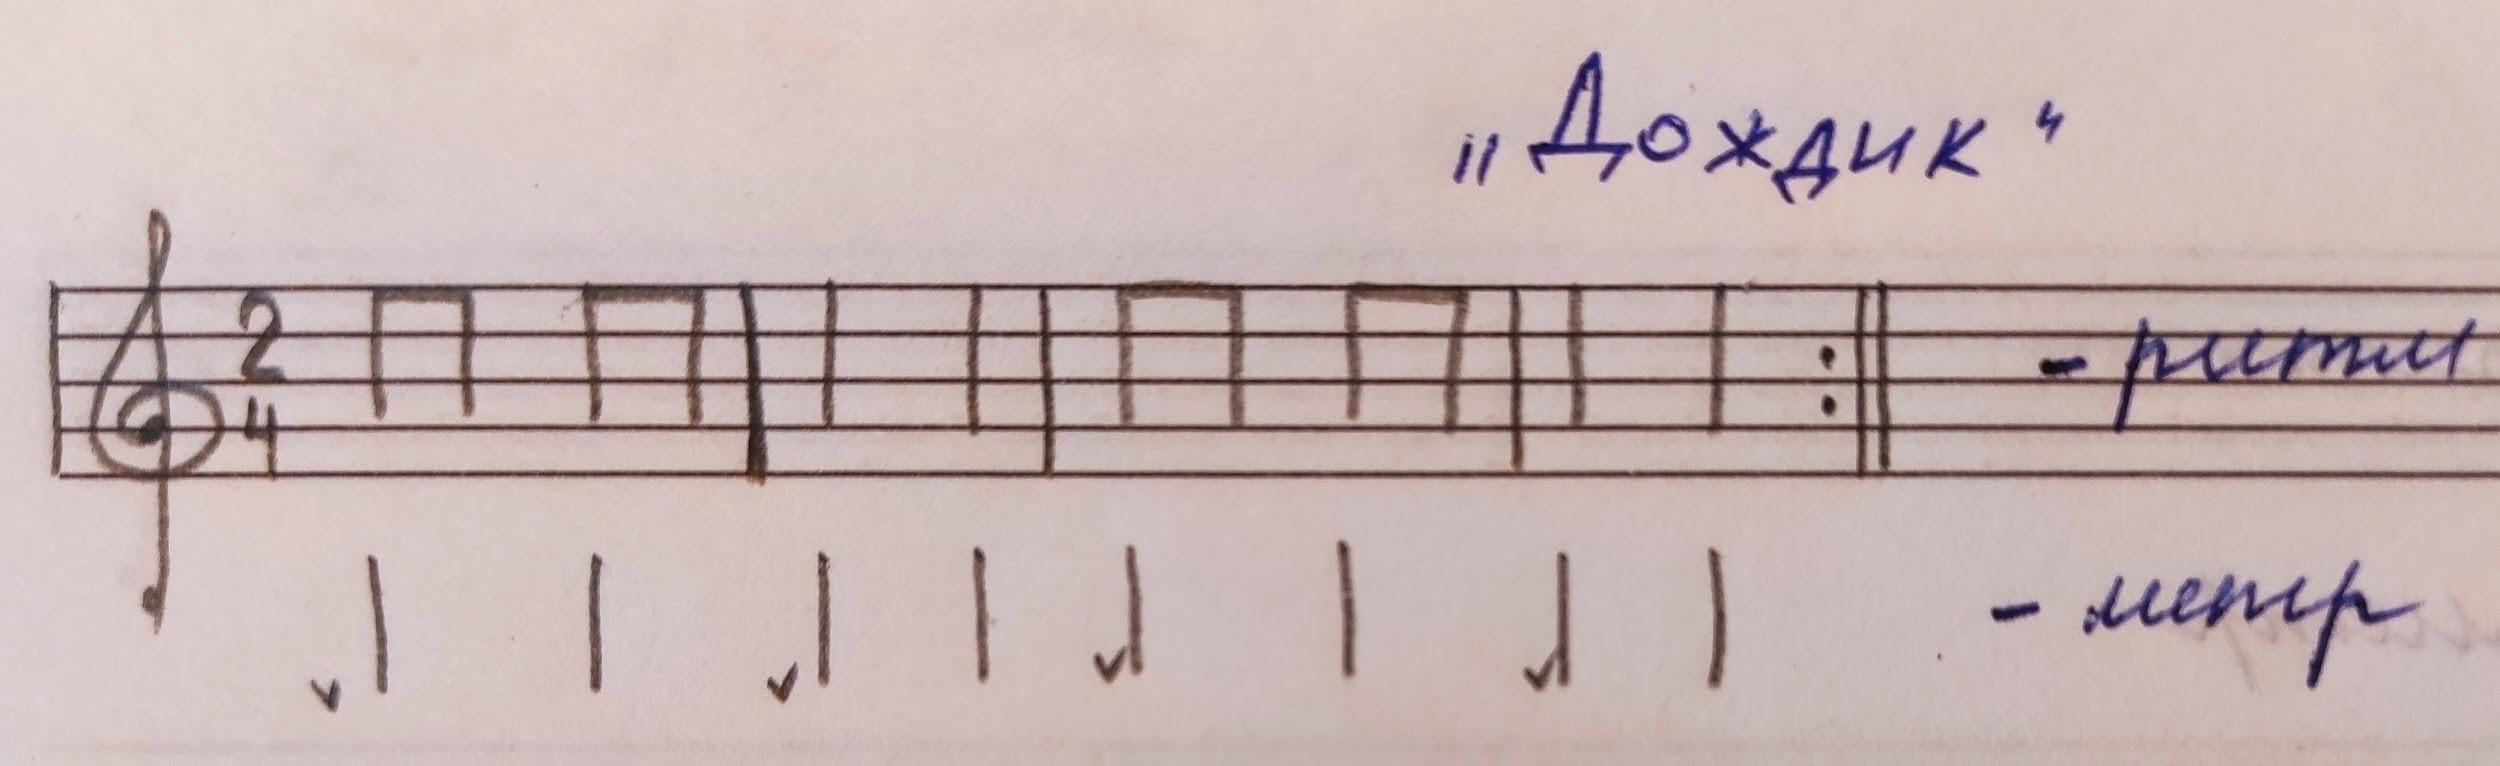 „Дождик“
2
4
- ритм
- метр